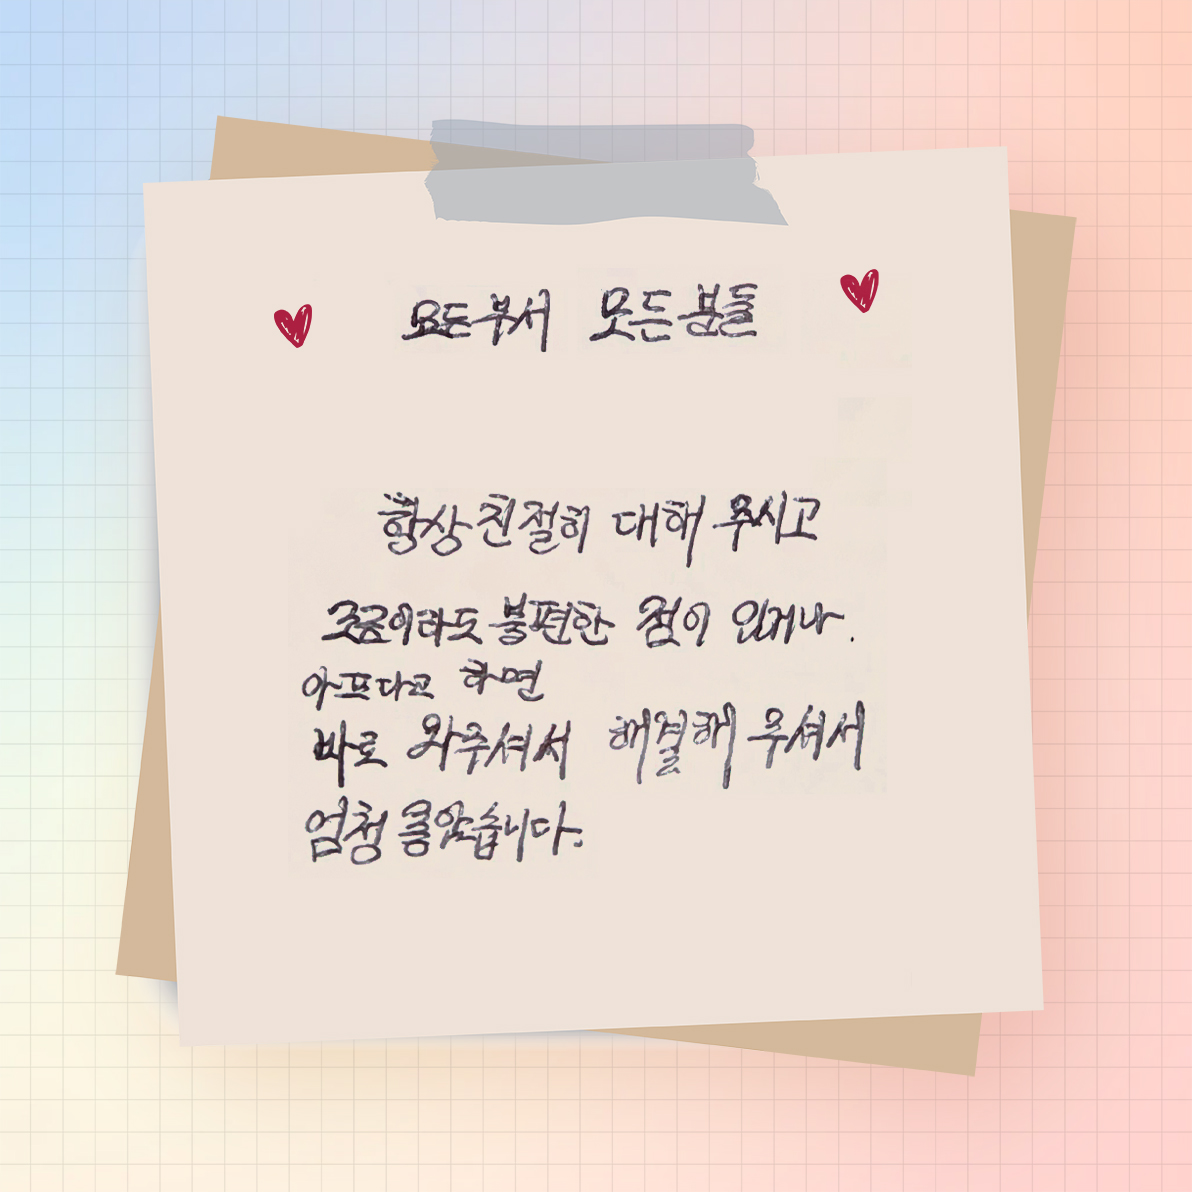 모든부서 모든분들
항상 친절히 대해 주시고
조금이라도 불편한 점이 있거나.
아프다고 하면
바로 와주셔서 해결해 주셔서
엄청 좋았습니다.